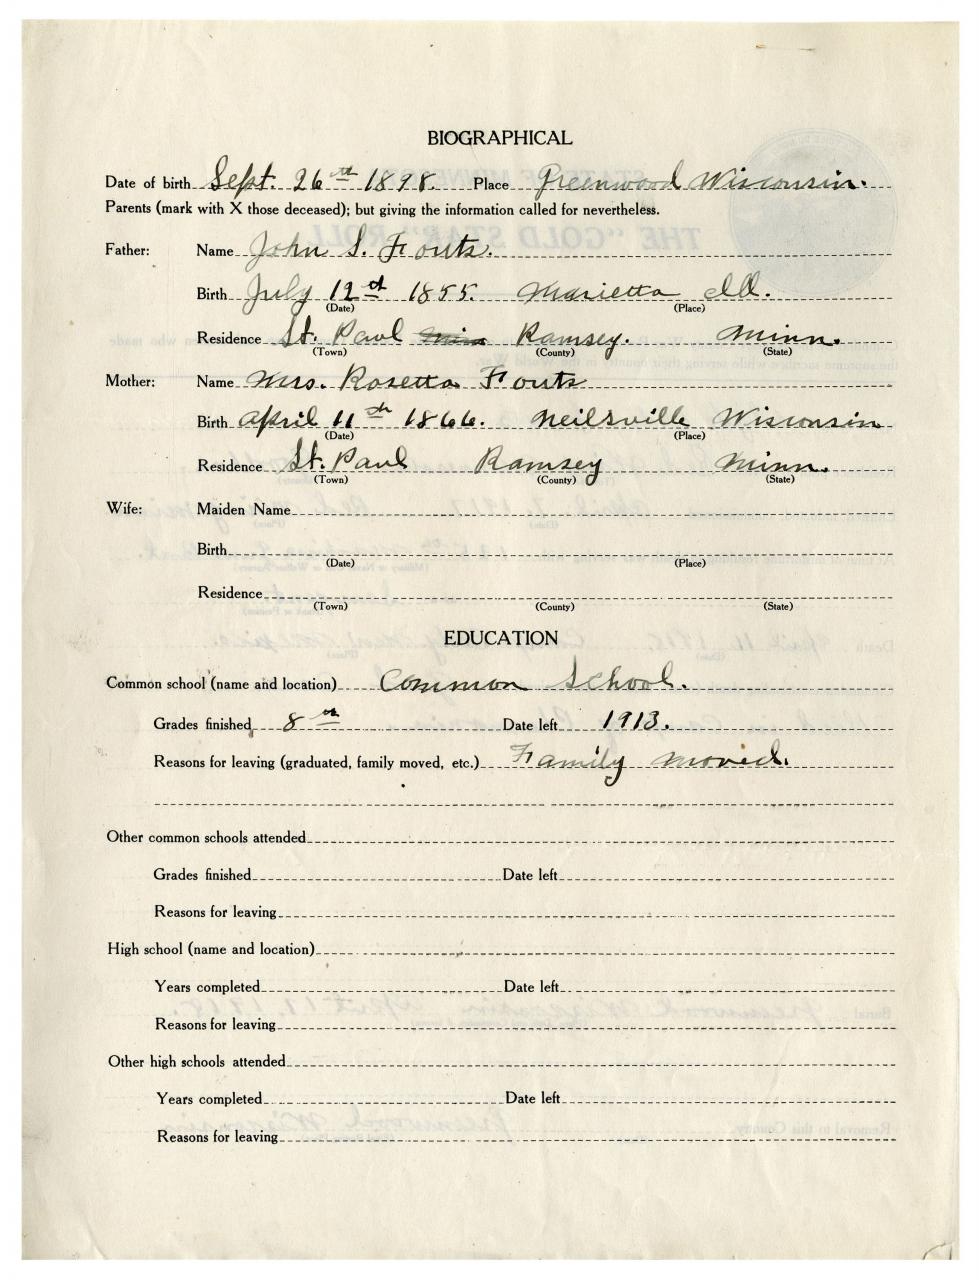 BIOGRAPHICAL
Date of birth Sept. 26th 1898. Place Greenwood Wisconsin.
Parents (mark with X those deceased); but giving the information called for nevertheless.
Father: Name John S. Fouts.
Birth July 12th 1855. Marietta Ill.
(Date) (Place)
Residence St. Paul Minn Ramsey. Minn.
(Town) (County) (State)
Mother: Name Mrs. Rosetta Fouts
Birth April 11th 1866. Neilsville Wisconsin
(Date) (Place)
Residence St. Paul Ramsey Minn.
(Town) (County) (State)
Wife: Maiden Name
Birth
(Date) (Place)
Residence
(Town) (County) (State)
EDUCATION
Common school (name and location) Common School.
Grades finished 8th Date left 1913.
Reasons for leaving (graduated, family moved, etc.) Family moved.
Other common schools attended
Grades finished Date left
Reasons for leaving
High school (name and location)
Years completed Date left
Reasons for leaving
Other high schools attended
Years completed Date left
Reasons for leaving